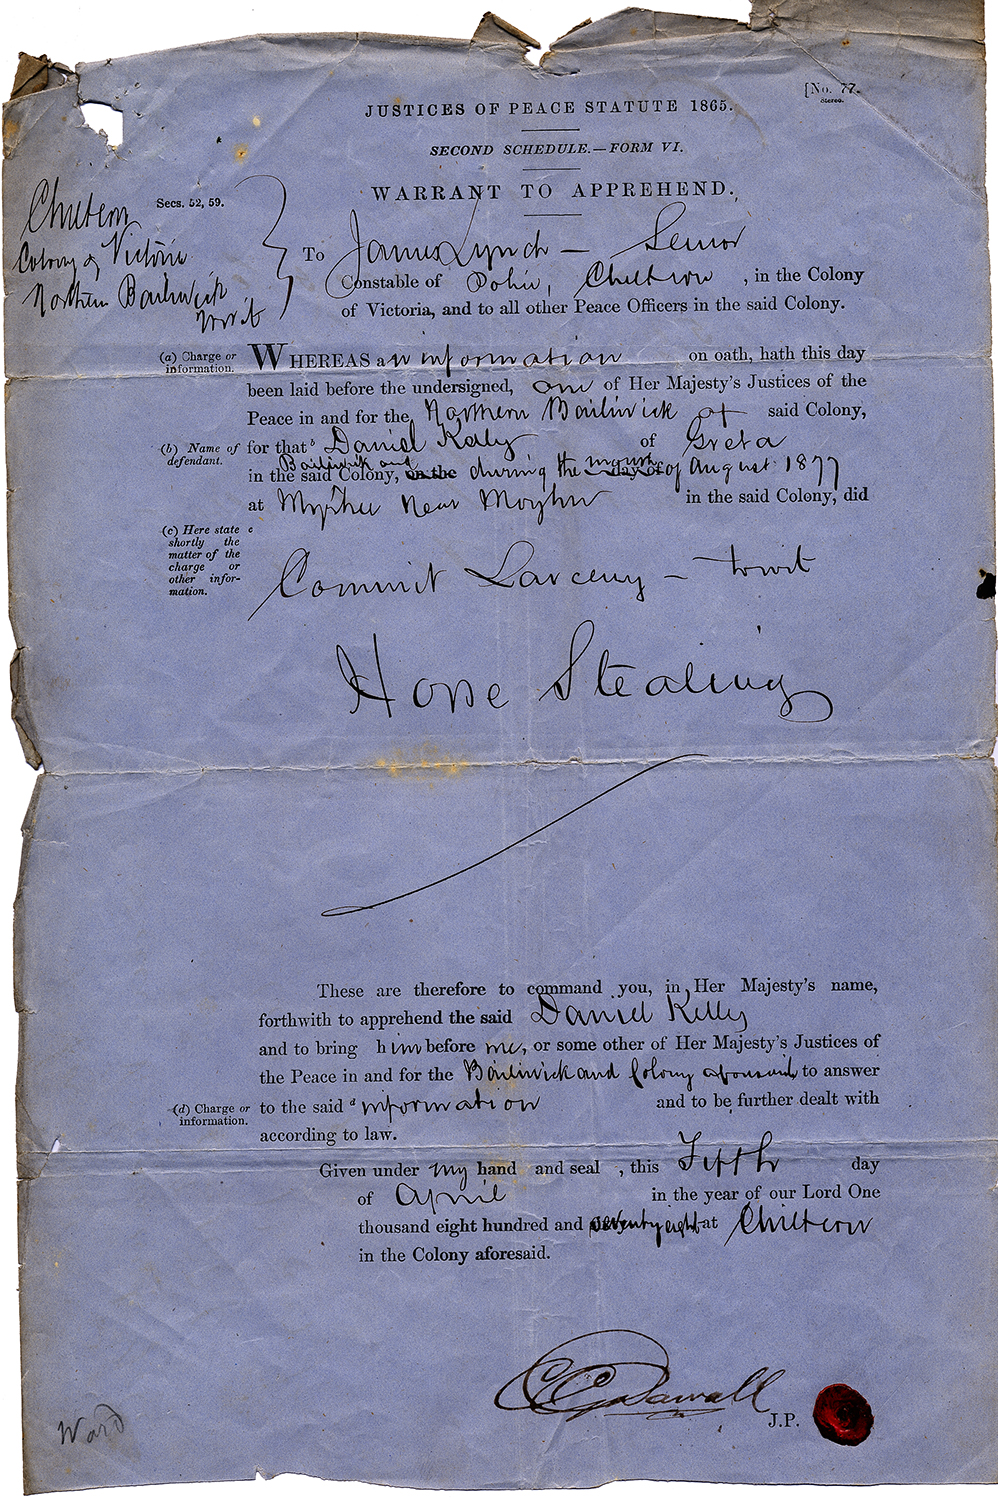 [No. 77.
Stereo.
JUSTICES OF PEACE STATUTE 1865.
SECOND SCHEDULE.—FORM VI.
WARRANT TO APPREHEND.
Secs. 52, 59.
Chiltern
Colony of Victoria
Northern Bailiwick
to wit
To James Lynch — Senior
Constable of Police, Chiltern, in the Colony
of Victoria, and to all other Peace Officers in the said Colony.
(a) Charge or
information.
WHEREAS an information on oath, hath this day
been laid before the undersigned, one of Her Majesty's Justices of the
Peace in and for the Northern Bailiwick of said Colony,
(b) Name of
defendant.
for that b Daniel Kelly of Greta
Bailiwick and month
in the said Colony, on the during the day of of August 1877
at near in the said Colony, did
(c) Here state
shortly the
matter of the
charge or
other infor-
mation.
c
Commit Larceny — towit
Horse Stealing
These are therefore to command you, in Her Majesty's name,
forthwith to apprehend the said Daniel Kelly
and to bring him before me, or some other of Her Majesty's Justices of
the Peace in and for the Bailiwick and Colony aforesaid to answer
(d) Charge or
information.
to the said d information and to be further dealt with
according to law.
Given under my hand and seal , this Fifth day
of April in the year of our Lord One
thousand eight hundred and seventy eight at Chiltern
in the Colony aforesaid.
J.P.
Ward